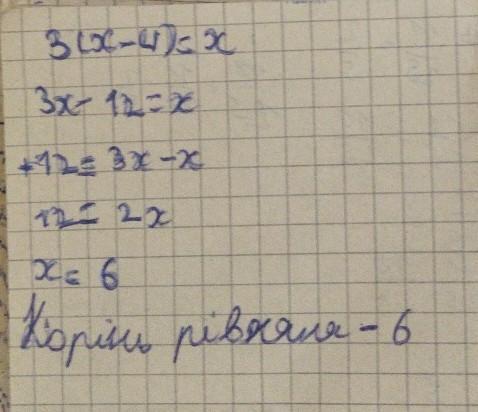 3(x-4)=x
3x-12=x
+12=3x-x
12=2x
x=6
Корінь рівняня - 6